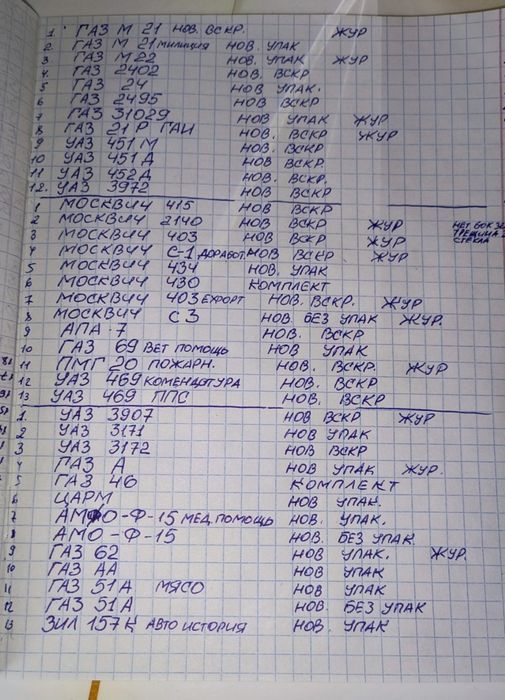 1. ГАЗ М 21 НОВ. ВСКР. ЖУР
2 ГАЗ М 21 МИЛИЦИЯ НОВ. УПАК
3 ГАЗ М22 НОВ. УПАК ЖУР
4. ГАЗ 2402 НОВ. ВСКР
5 ГАЗ 24 НОВ УПАК.
6 ГАЗ 2495 НОВ ВСКР
7 ГАЗ 31029 НОВ УПАК ЖУР
8 ГАЗ 21 Р ГАИ НОВ. ВСКР ЖУР
9 УАЗ 451 М НОВ. ВСКР.
10 УАЗ 451 Д НОВ ВСКР
11 УАЗ 452 Д НОВ. ВСКР.
12. УАЗ 3972 НОВ ВСКР
1 МОСКВИЧ 415 НОВ ВСКР
2 МОСКВИЧ 2140 НОВ ВСКР ЖУР НЕТ БОК
3 МОСКВИЧ 403 НОВ ВСКР ЖУР. ТРЕЩИНА
4 МОСКВИЧ С-1 ДОРАБОТ НОВ ВСКР ЖУР СТЕКЛА
5 МОСКВИЧ 434 НОВ. УПАК
6 МОСКВИЧ 430 КОМПЛЕКТ
7 МОСКВИЧ 403 EXPORT НОВ. ВСКР. ЖУР
8 МОСКВИЧ С 3 НОВ. БЕЗ УПАК ЖУР.
9 АПА-7 НОВ. ВСКР
10 ГАЗ 69 ВЕТ ПОМОЩЬ НОВ УПАК
11 ПМГ 20 ПОЖАРН. НОВ. ВСКР. ЖУР
12 УАЗ 469 КОМЕНДАТУРА НОВ. ВСКР
13 УАЗ 469 ППС НОВ. ВСКР
1. УАЗ 3907 НОВ ВСКР ЖУР
2 УАЗ 3171 НОВ УПАК
3 УАЗ 3172 НОВ ВСКР
4 ГАЗ А НОВ УПАК ЖУР.
5 ГАЗ 46 КОМПЛЕКТ
6 ЦАРМ НОВ УПАК.
7 АМО-Ф-15 МЕД. ПОМОЩЬ НОВ. УПАК.
8 АМО-Ф-15 НОВ. БЕЗ УПАК
9 ГАЗ 62 НОВ УПАК. ЖУР.
10 ГАЗ АА НОВ УПАК
11 ГАЗ 51А МЯСО НОВ УПАК
12 ГАЗ 51А НОВ. БЕЗ УПАК
13 ЗИЛ 157К АВТО ИСТОРИЯ НОВ. УПАК